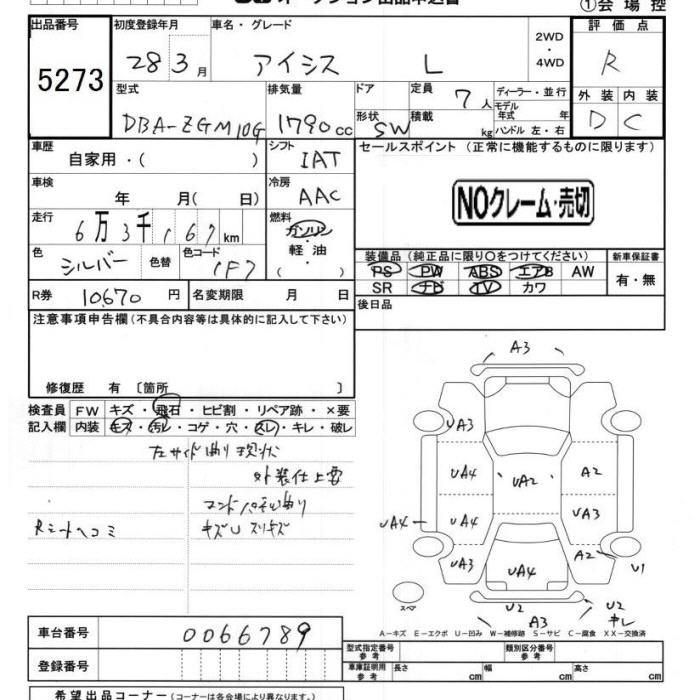 オークション出品申込書
①会場控
出品番号 初度登録年月 車名・グレード 2WD・4WD 評価点
5273 28 3月 アイシス L R
型式 排気量 ドア 定員 7人 ディーラー・並行 外装 内装
モデル年式 年
DBA-ZGM10G 1790cc 形状 SW 積載 kg ハンドル 左・右 D C
車歴 シフト セールスポイント (正常に機能するものに限ります)
自家用・( ) IAT
車検 冷房
年 月( 日) AAC NOクレーム・売切
走行 燃料
6万3千167km ガソリン
軽・油
( )
色 シルバー 色替 色コード 1F7
装備品 (純正品に限り○をつけてください) 新車保証書
PS PW ABS エアB AW 有・無
SR ナビ TV カワ
R券 10670円 名変期限 月 日
後日品
注意事項申告欄(不具合内容等は具体的に記入して下さい)
修復歴 有 〔箇所 〕
検査員 FW キズ・飛石・ヒビ割・リペア跡・×要
記入欄 内装 キズ・汚レ・コゲ・穴・スレ・キレ・破レ
左サイド曲り現状
外装仕上要
Rシートヘコミ
キズU スリキズ
A3
UA3
UA4 UA2 A2
UA4 UA4 UA3
UA3 UA4 A2 U1
スペア
U2 A3 U2 キレ
A-キズ E-エクボ U-凹み W-補修跡 S-サビ C-腐食 XX-交換済
車台番号 0066789
登録番号
型式指定番号 参考 類別区分番号 参考
車庫証明用 参考 長さ cm 幅 cm 高さ cm
希望出品コーナー (コーナーは各会場により異なります。)